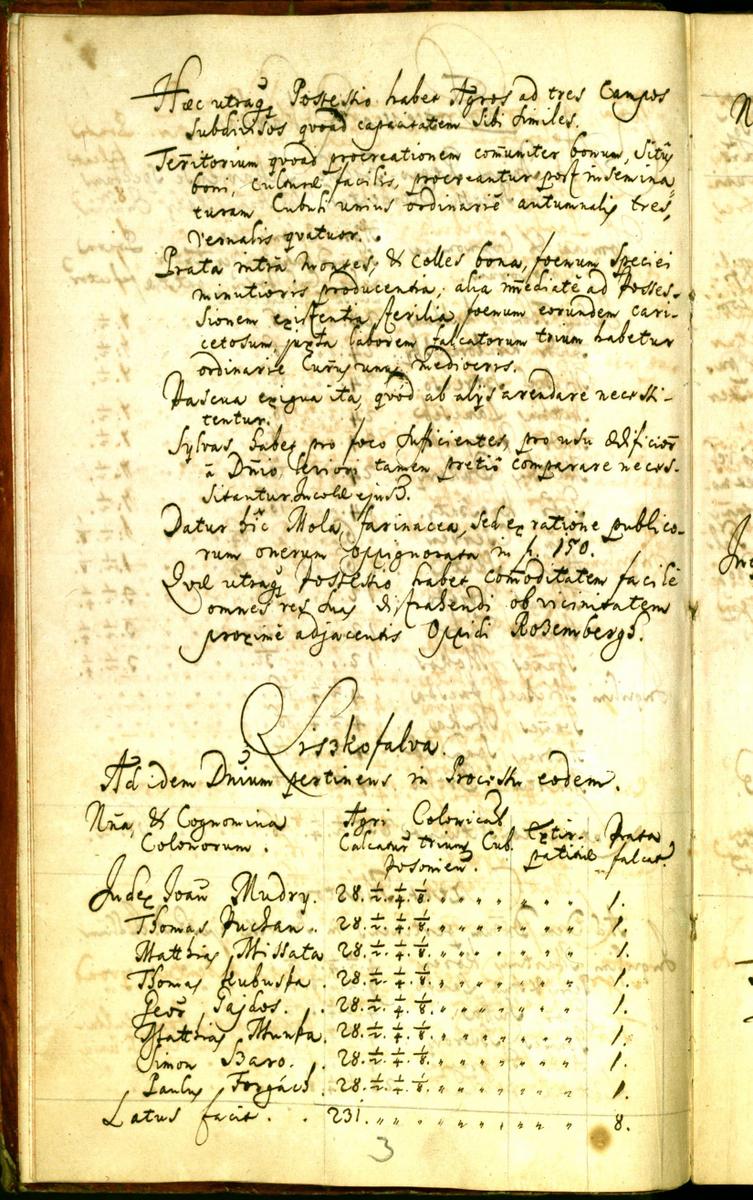 Hæc utraq̃ Possessio habet Agros ad tres Campos
subdivisos quoad capacitatem sibi similes.
Teritorium quoad procreationem com̃uniter bonum, sitq̃
boni, culturæ facilis, procreantur post insemina
turam Cubuli unius ordinariè autumnalis tres,
vernalis quatuor.
Prata intrà Montes, & colles bona, foenum speciei
minutioris producentia, alia im̃ediatè ad Posses-
sionem existentia sterilia, foenum eorundem cari-
cetosum, juxta laborem falcatorum trium habetur
ordinariè Currus unus mediocris.
Pascua exigua ita, quòd ab alijs arendare necessi-
tentur.
Sylvas habet pro foco sufficientes, pro usu ædificior̃
à Dñio, leviori tamen pretio comparare neces-
sitantur Incolæ ejusd.
Datur hic Mola farinacea, sed ex ratione publico-
rum onerum oppignorata in f. 150.
Quæ utraq̃ Possessio habet com̃oditatem facilè
omnes res suas distrahendi ob vicinitatem
proximè adjacentis Oppidi Rosembergẽ.
Liszkofalva.
Ad idem Dñium pertinens in Processu eodem.
Nña, & Cognomina Agri Colonicales Extir- Prata
Colonorum. Calcatur̃ trium Cub. patitiæ falcat.
Posonien.
Judex Joan̄ Mudry. 28. ½. ¼. ⅛. " " " " " " 1.
Thomas Puchan. 28. ½. ¼. ⅛. " " " " " " 1.
Matthias Missata 28. ½. ¼. ⅛. " " " " " " 1.
Thomas Hubusta. 28. ½. ¼. ⅛. " " " " " " 1.
Geor̃ Gajdos. 28. ½. ¼. ⅛. " " " " " " 1.
Matthias Munka. 28. ½. ¼. ⅛. " " " " " " 1.
Simon Baro. 28. ½. ¼. ⅛. " " " " " " 1.
Paulus Forgách. 28. ½. ¼. ⅛. " " " " " " 1.
Latus facit. 231. " " " " " " " " " 8.
3